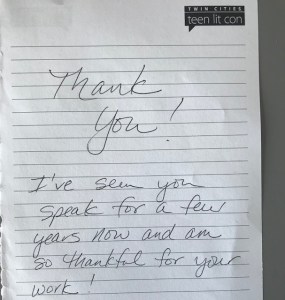 TWIN CITIES
teen lit con
Thank
You!
I've seen you
speak for a few
years now and am
so thankful for your
work!